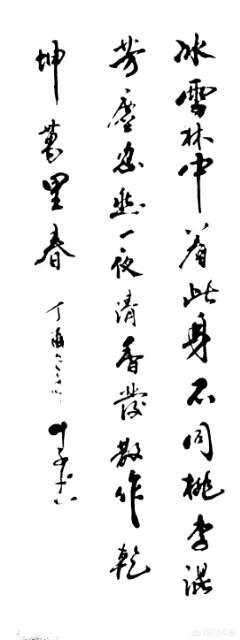 冰雪林中着此身不同桃李混
芳塵忽然一夜清香發散作乾
坤萬里春
丁酉